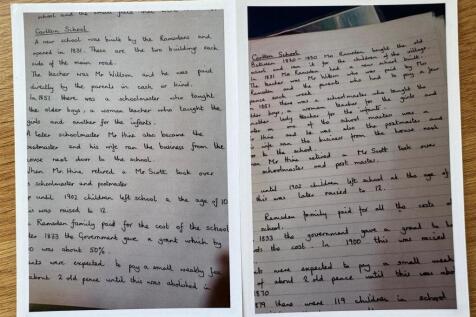 school and the small
Carlton School
A new school was built by the Ramsdens and
opened in 1831. These are the two buildings each
side of the main road.
The teacher was Mr Willson and he was paid
directly by the parents in cash or kind.
In 1851 there was a schoolmaster who taught
the older boys, a woman teacher who taught the
girls and another for the infants.
A later schoolmaster Mr Hine also became the
postmaster and his wife ran the business from the
house next door to the school.
When Mr. Hine, retired a Mr Scott took over
schoolmaster and postmaster
until 1902 children left school a the age of 10
was raised to 12.
Ramsden family paid for the cost of the school
1833 the Government gave a grant which by
was about 50%.
were expected to pay a small weekly fee
about 2 old pence until this was abolished in
Carlton School
Between 1820 - 1830 Mrs Ramsden bought the old
school and ran it for the children of the village.
In 1831 Mrs Ramsden
The teacher Mr Willson who was paid by Mrs
Ramsden and the parents who had to pay a few
pence each week.
1851 there was a schoolmaster who taught the
older boys, a woman teacher for the girls and
another lady teacher for the infants.
one of the school masters was a
Hine and he was also the postmaster and
wife ran the business from the house next
to the school.
Mr Hine retired a Mr Scott took over
schoolmaster and post master.
until 1902 children left school at the age of
this was later raised to 12.
Ramsden family paid for all the costs of
school.
1833 the government gave a grant to help
the cost. In 1900 this was raised
were expected to pay a small week
of about 2 old pence until this was abo
1870
1879 there were 119 children in school